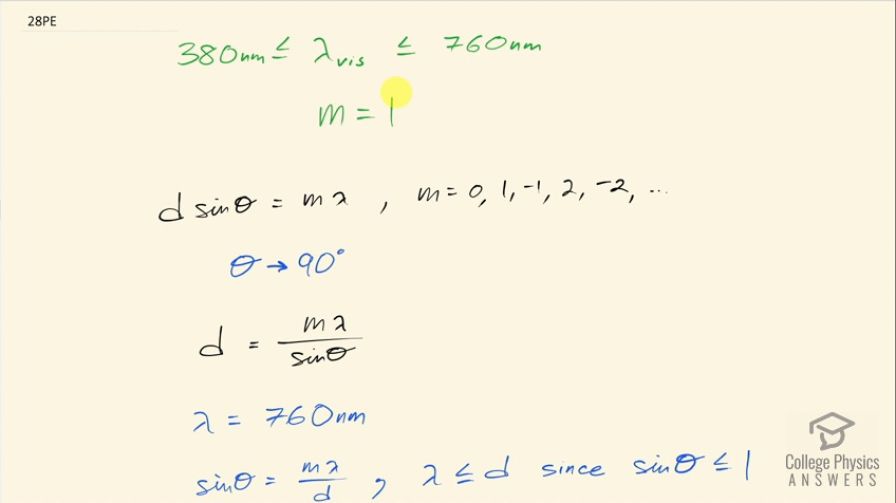 28PE
380nm ≤ λvis ≤ 760nm
m = 1
d sinθ = mλ , m = 0, 1, -1, 2, -2, ...
θ → 90°
d = mλ / sinθ
λ = 760nm
sinθ = mλ / d , λ ≤ d since sinθ ≤ 1
College Physics
ANSWERS